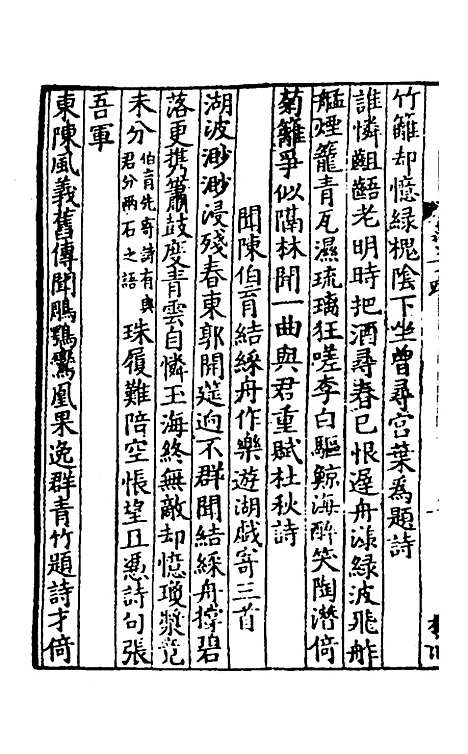 竹籬却憶綠槐陰下坐曾尋宮葉為題詩
誰憐齟齬老明時把酒尋春已恨遲舟漾綠波飛舴
艋煙籠青瓦濕琉璃狂嗟李白驅鯨海醉笑陶潛倚
菊籬爭似隔林聞一曲與君重賦杜秋詩
聞陳伯育結綵舟作樂遊湖戲寄三首
湖波渺渺浸殘春東郭開筵逈不群聞結綵舟撐碧
落更攜簫鼓度青雲自憐玉海終無敵却憶瓊漿竟
未分伯育先寄詩有與君分兩石之語珠履難陪空悵望且憑詩句張
吾軍
東陳風義舊傳聞鵰鶚鸞凰果逸群青竹題詩才倚